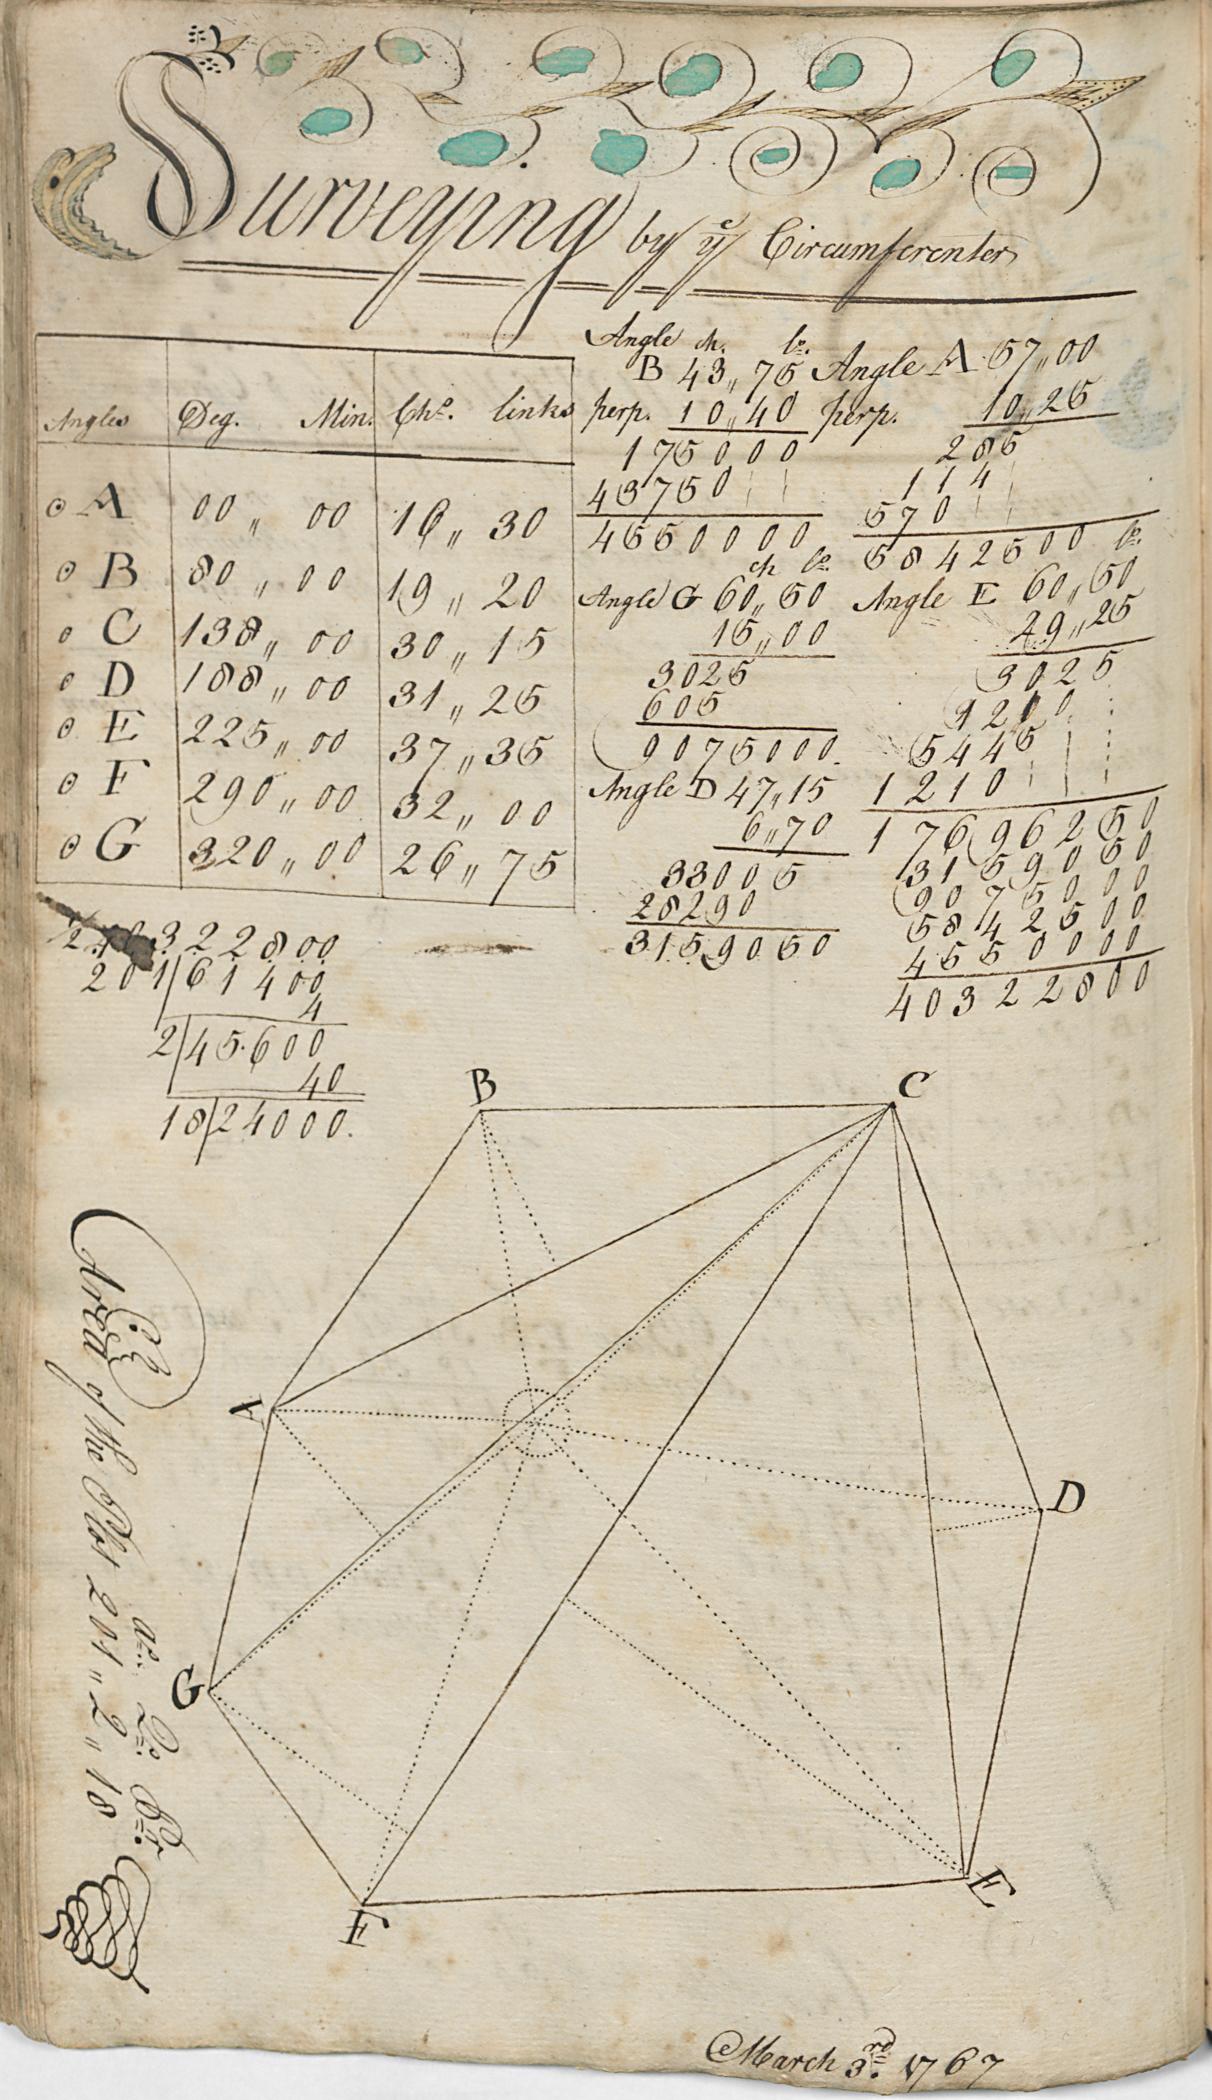 Surveying by yᵉ Circumferenter
Angles Deg. Min. Chˢ. links
⊙ A 00 „ 00 16 „ 30
⊙ B 80 „ 00 19 „ 20
⊙ C 138 „ 00 30 „ 15
⊙ D 188 „ 00 31 „ 25
⊙ E 225 „ 00 37 „ 35
⊙ F 290 „ 00 32 „ 00
⊙ G 320 „ 00 26 „ 75
Angle ch. lˢ.
B 43 „ 75
perp. 10 „ 40
175000
43750
4550000
Angle A 57 „ 00
perp. 10 „ 25
285
114
570
5842500
ch lˢ.
Angle G 60 „ 50
15 „ 00
3025
605
9075000
lˢ.
Angle E 60 „ 50
29 „ 25
3025
1210
5445
1210
17696250
3159050
9075000
5842500
4550000
40322800
Angle D 47 „ 15
6 „ 70
33005
28290
3159050
322800
201|61400
4
2|45600
40
18|24000.
B
C
A
D
G
E
F
aˢ. Qˢ. Pʳ.
Area of the Plot 201 „ 2 „ 18
March 3ʳᵈ. 1767